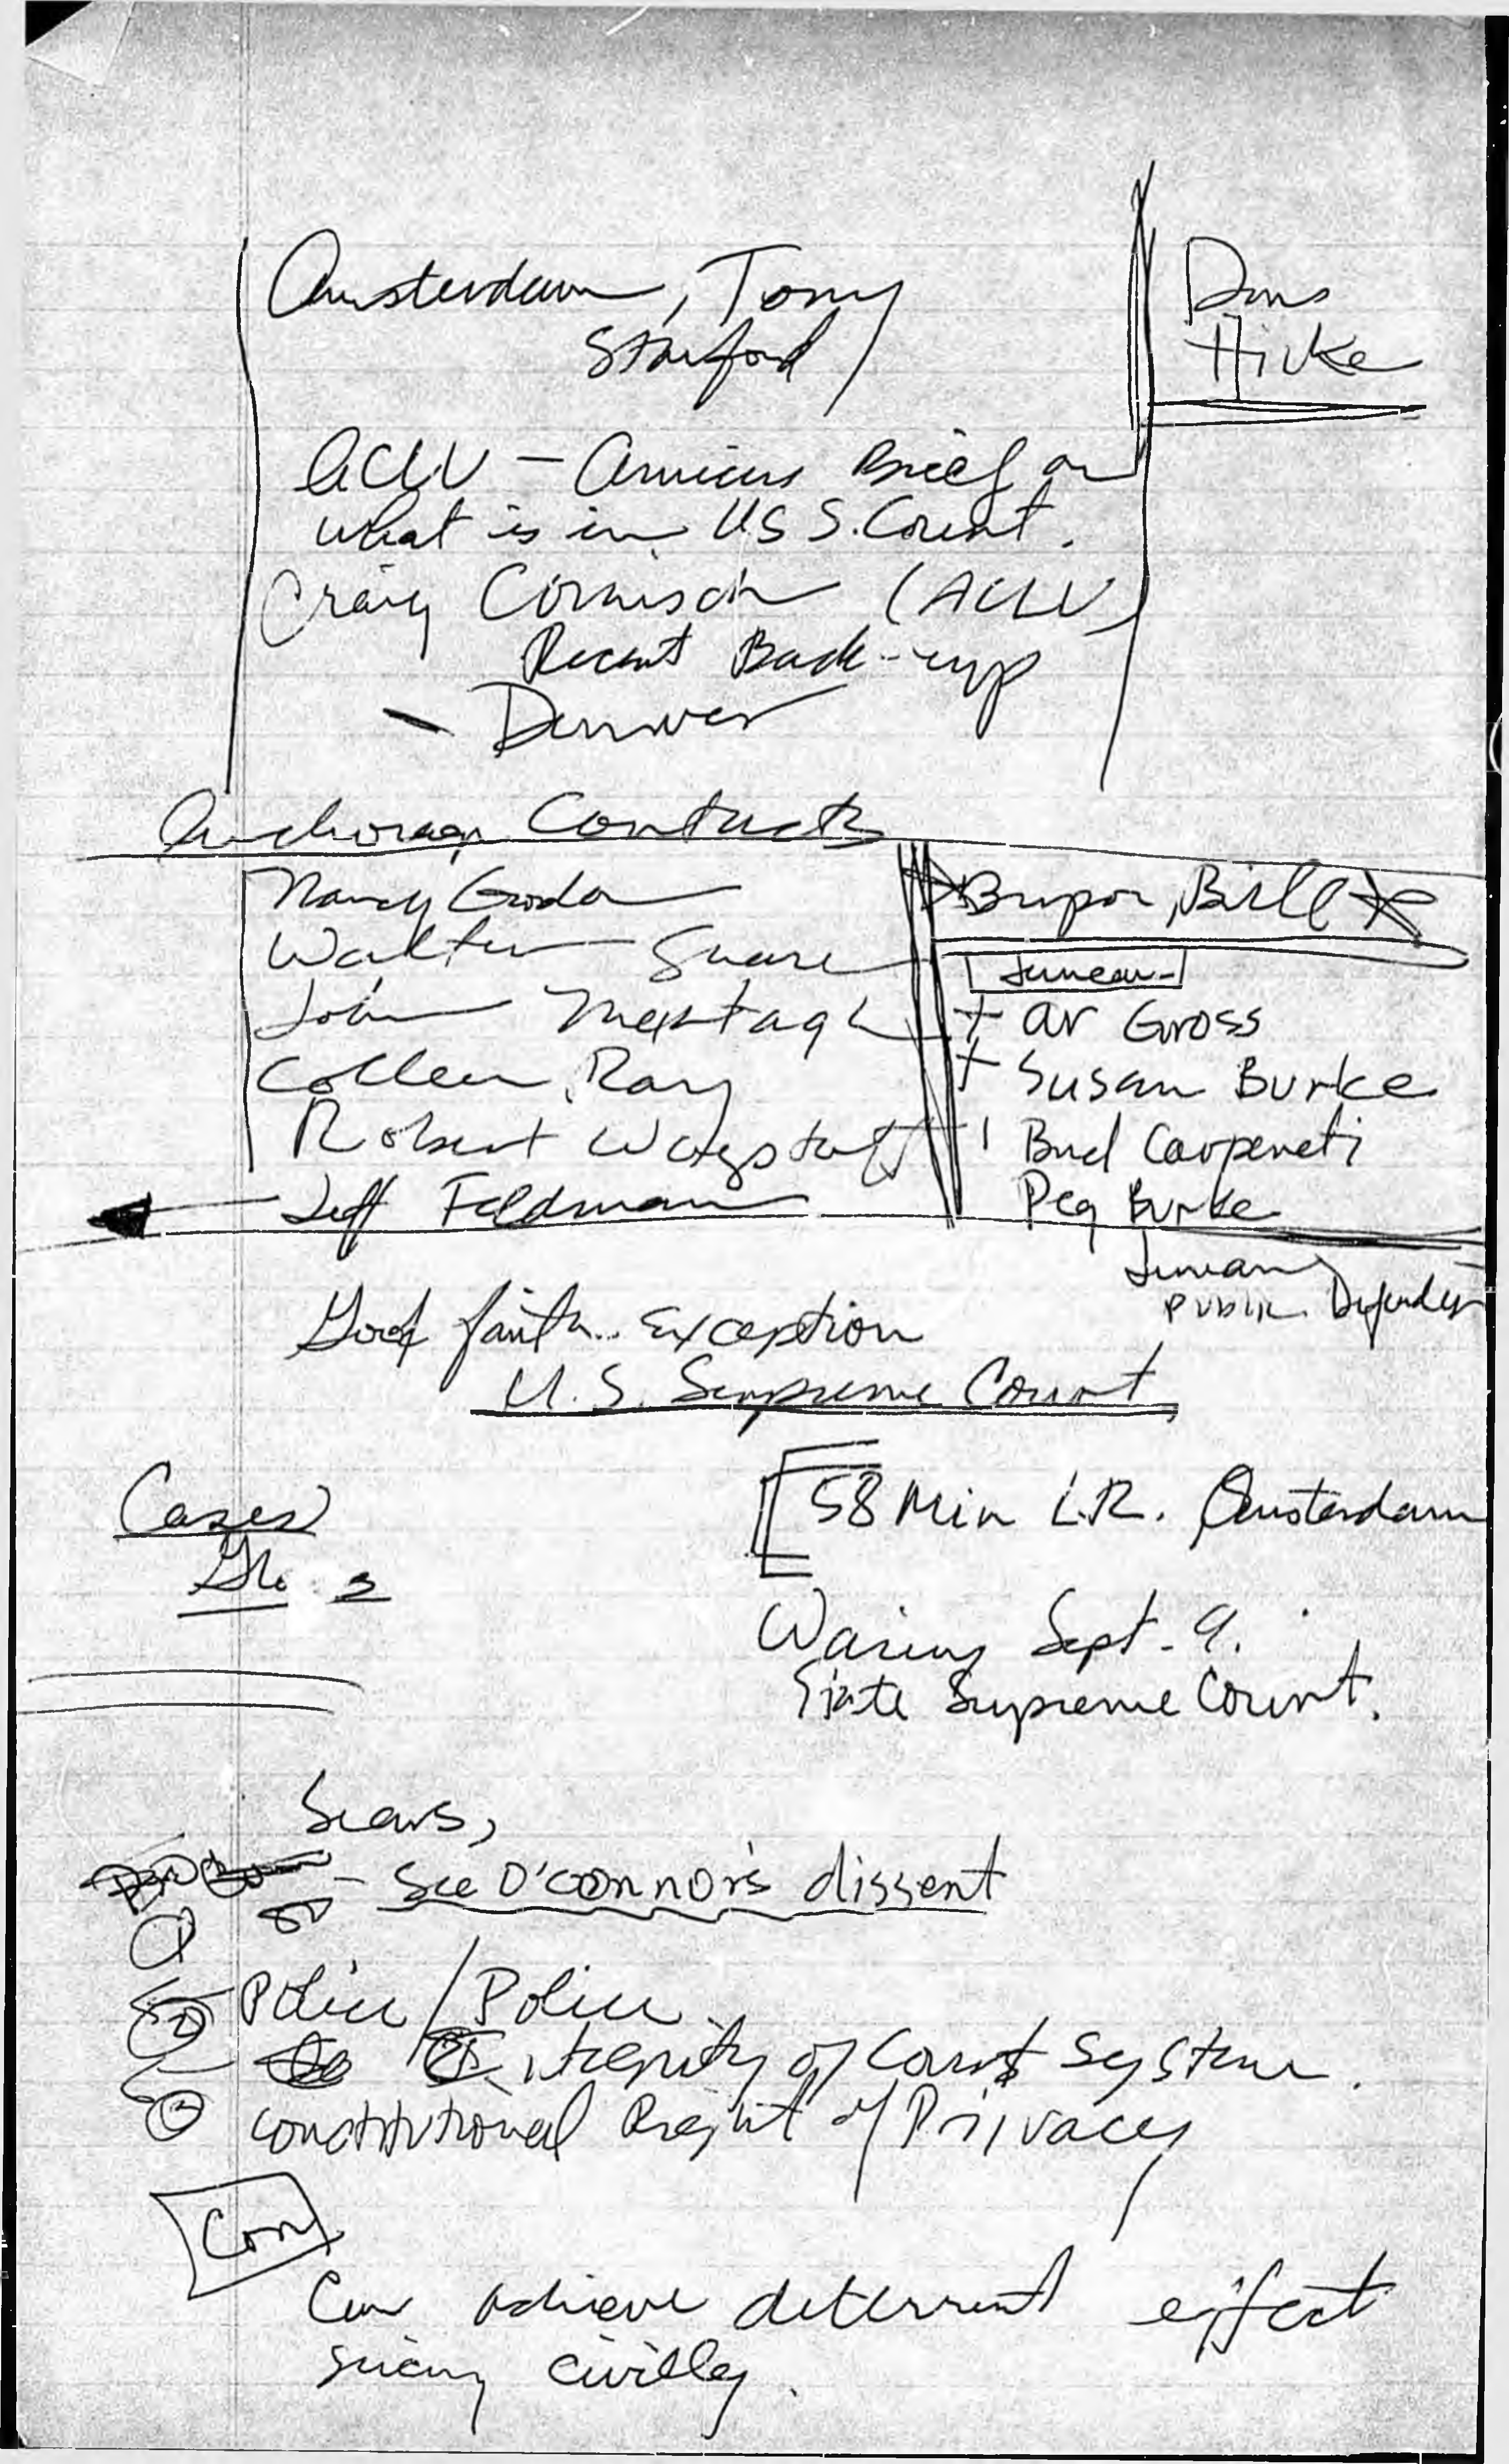 Amsterdam, Tony
Stanford
ACLU - Amicus Brief on
what is in US S. Court.
Craig Cornish (ACLU)
Recent Back-up
- Denver
Anchorage Contacts
Nancy
Walter
John
Colleen Ray
Robert Wagstaff
Jeff Feldman
Bill
Juneau
+ Av Gross
+ Susan Burke
Bud Carpeneti
Peg Burke
Juneau
Public Defender
Good faith exception
U.S. Supreme Court
Cases
58 Min L.R. Amsterdam
Waring Sept. 9.
State Supreme Court.
Sears,
- See O'Connor's dissent
①
② Police / Police
of Court System.
③ Constitutional Right of Privacy
Con
Can achieve deterrent effect
suing civilly.